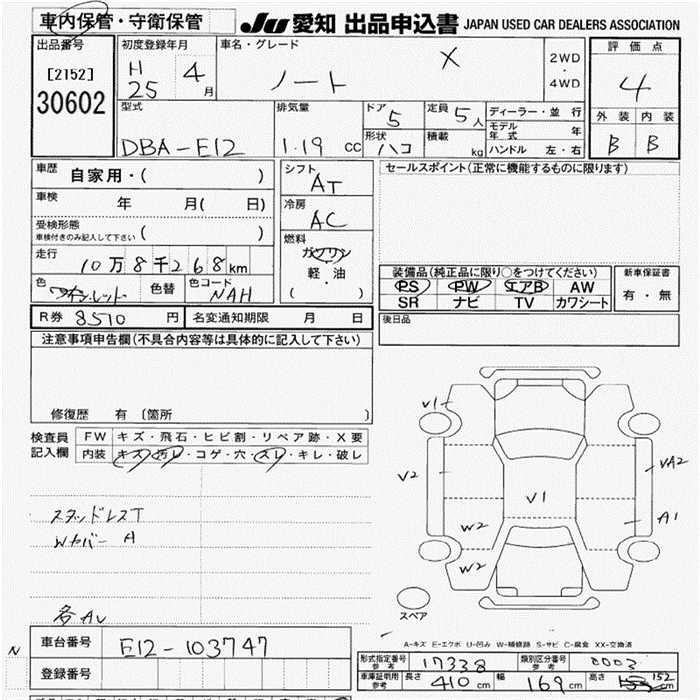 車内保管・守衛保管 JU 愛知 出品申込書 JAPAN USED CAR DEALERS ASSOCIATION
出品番号
[2152]
30602
初度登録年月
H 25 4月
車名・グレード
ノート X
2WD
・
4WD
評価点
4
外装 内装
B B
型式
DBA-E12
排気量
1.19 cc
ドア
5
定員 5人
形状
ハコ
積載 kg
ディーラー・並行
モデル年式 年
ハンドル 左・右
車歴 自家用・( )
車検 年 月( 日)
受検形態
車検付きのみ記入して下さい ( )
走行
10万8千268km
色 ワインレッド 色替 色コード NAH
シフト
AT
冷房
AC
燃料
ガソリン
軽・油
( )
セールスポイント(正常に機能するものに限ります)
装備品(純正品に限り○をつけてください)
PS PW エアB AW
SR ナビ TV カワシート
新車保証書
有・無
R券 8510 円 名変通知期限 月 日
後日品
注意事項申告欄(不具合内容等は具体的に記入して下さい)
修復歴 有〔箇所 〕
検査員記入欄
FW キズ・飛石・ヒビ割・リペア跡・X要
内装 キズ・汚レ・コゲ・穴・スレ・キレ・破レ
スタッドレスT
Wカバー A
各AU
V1
V2
V1
VA2
A1
W2
W2
スペア
A-キズ E-エクボ U-凹み W-補修跡 S-サビ C-腐食 XX-交換済
N
車台番号 E12-103747
登録番号
形式指定番号 参考 17338 類別区分番号 参考 0003
車庫証明用 参考 長さ 410cm 幅 169cm 高さ 152cm